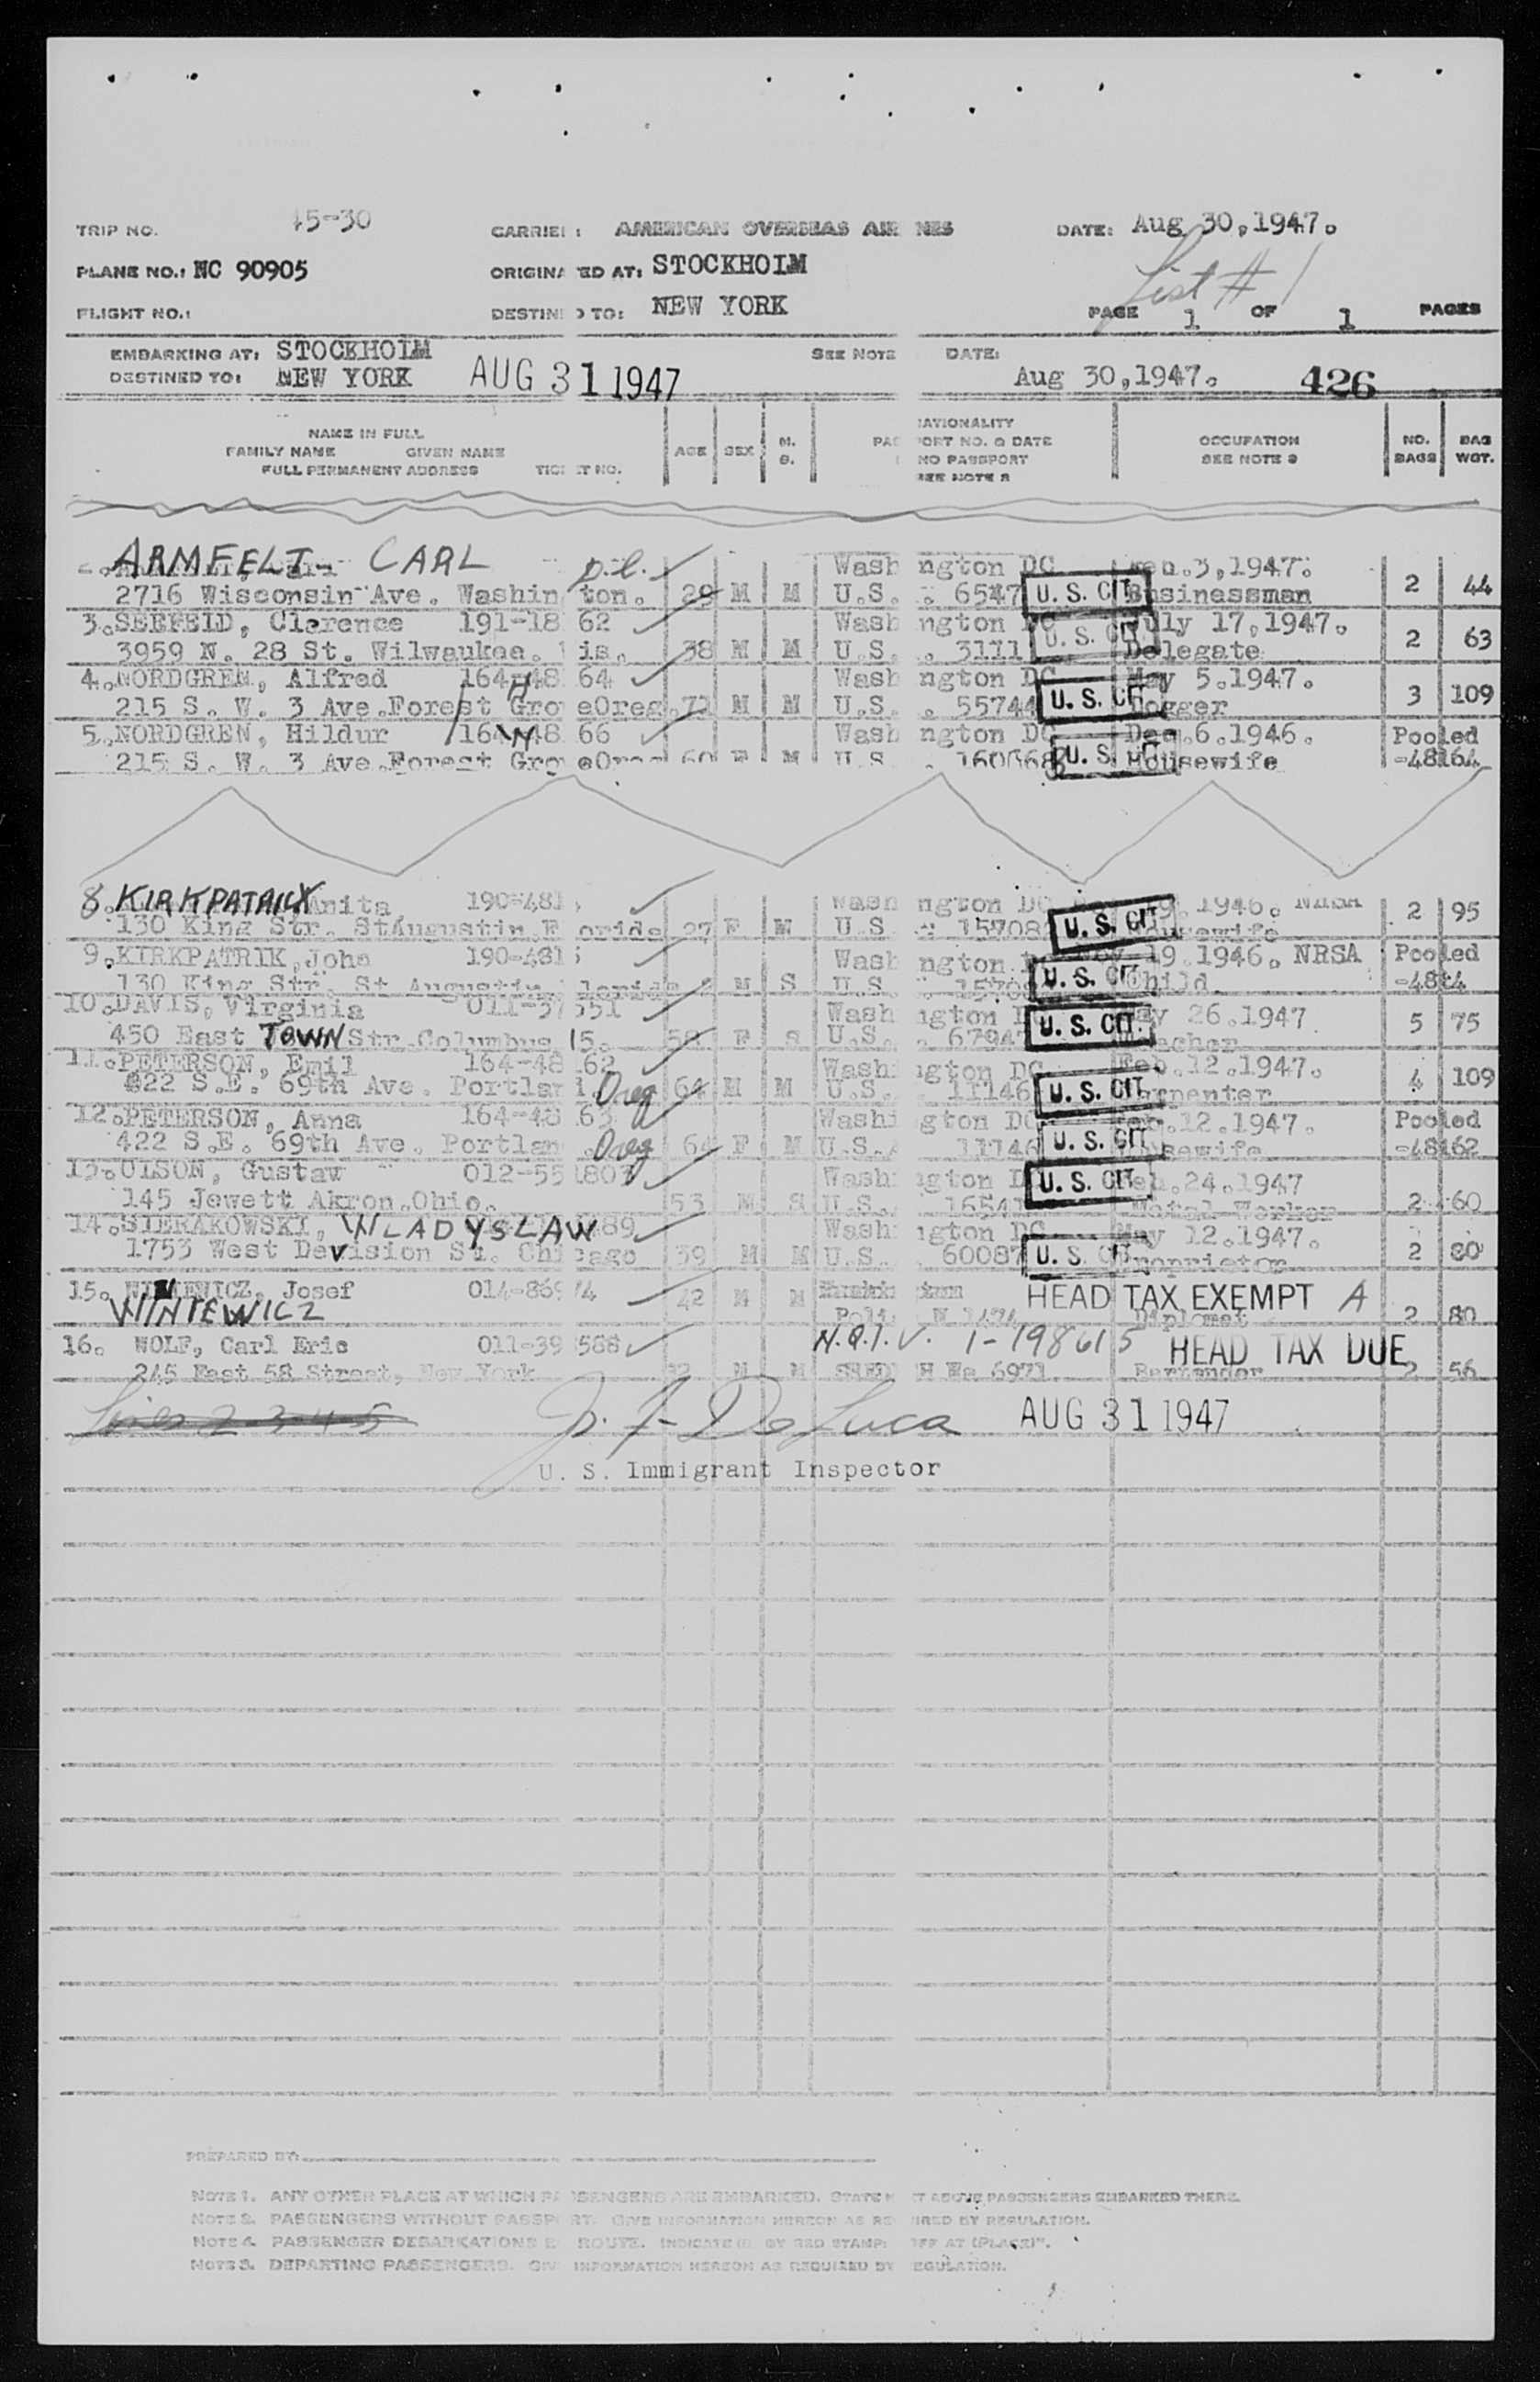 TRIP NO. 45-30 CARRIE : AMERICAN OVERSEAS AIR NES DATE: Aug 30,1947.
PLANE NO.: NC 90905 ORIGINA ED AT: STOCKHOLM List # 1
FLIGHT NO.: DESTIN D TO: NEW YORK PAGE 1 OF 1 PAGES
EMBARKING AT: STOCKHOLM SEE NOTE DATE:
DESTINED TO: NEW YORK AUG 31 1947 Aug 30,1947. 426
NAME IN FULL
FAMILY NAME GIVEN NAME
FULL PERMANENT ADDRESS TICK ET NO.
AGE SEX M. S.
NATIONALITY
PAS PORT NO. & DATE
NO PASSPORT
SEE NOTE 2
OCCUPATION
SEE NOTE 3
NO. BAGS
BAG WGT.
ARMFELT CARL D.C. Wash ngton DC 3,1947.
2716 Wisconsin Ave. Washin ton. 29 M M U.S. . 6547 U. S. CIT. Businessman 2 44
3.SEEFELD, Clarence 191-18 62 Wash ngton DC July 17,1947.
3959 N. 28 St. Wilwaukee. is. 38 M M U.S. . 3111 U. S. CIT Delegate 2 63
4.NORDGREN, Alfred 164-48 64 Wash ngton DC May 5.1947.
215 S. W. 3 Ave.Forest Gro eOreg. 71 M M U.S. . 55744 U. S. CIT Logger 3 109
5.NORDGREN, Hildur 164-48 66 Wash ngton DC Dec.6.1946. Pooled
215 S. W. 3 Ave.Forest Gro eOreg 60 F M U.S. . 160668 U. S. Housewife -48164
8. KIRKPATRICK Anita 190-481 Wash ngton DC 19.1946. NRSA
130 King Str. StAugustin.F orida 27 F M U.S. 15708 U. S. CIT Housewife 2 95
9.KIRKPATRIK,John 190-481 Wash ngton Nov 19.1946. NRSA Pooled
130 King Str. St Augustin. lorida M S U.S. U. S. CIT Child
10.DAVIS, Virginia 011-37 551 Wash ngton May 26.1947
450 East TOWN Str.Columbus 15. 58 F S U.S. . 67947 U. S. CIT. Teacher 5 75
11.PETERSON, Emil 164-48 62 Wash ngton DC Feb.12.1947.
422 S.E. 69th Ave. Portlan Oreg 64 M M U.S. . 11146 U. S. CIT. Carpenter 4 109
12.PETERSON, Anna 164-48 63 Washi gton DC Feb.12.1947. Pooled
422 S.E. 69th Ave. Portlan .Oreg 64 F M U.S. 11146 U. S. CIT Housewife -48162
13.OLSON, Gustaw 012-55 1807 Wash ngton D Feb.24.1947
145 Jewett Akron.Ohio. 53 M S U.S. 16541 U. S. CIT Metal Worker 2 60
14.SIERAKOWSKI, WLADYSLAW 89 Wash ngton DC May 12.1947.
1753 West Devision St. Chi cago 39 M M U.S. 60087 U. S. CIT Proprietor 2 80
15. Josef 014-869 74 42 M M HEAD TAX EXEMPT A
WINIEWICZ Diplomat 2 80
16. WOLF, Carl Eric 011-39 588 N.Q.I.V. 1-198615 HEAD TAX DUE
245 East 58 Street, New York 32 M M SWED H Wa 6971 Bartender 2 56
Lines 2-3-4-5 J. F. De Luca AUG 31 1947
U. S. Immigrant Inspector
PREPARED BY:
NOTE 1. ANY OTHER PLACE AT WHICH PA SSENGERS ARE EMBARKED. STATE N T ABOVE PASSENGERS EMBARKED THERE.
NOTE 2. PASSENGERS WITHOUT PASSP RT. GIVE INFORMATION HEREON AS RE IRED BY REGULATION.
NOTE 4. PASSENGER DEBARKATIONS E ROUTE. INDICATE BY RED STAMP: OFF AT (PLACE)".
NOTE 3. DEPARTING PASSENGERS. GIV INFORMATION HEREON AS REQUIRED BY EGULATION.